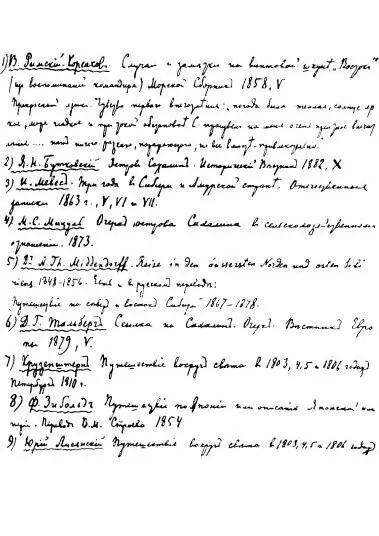 1) В. Римскій-Корсаков. Случаи и заметки на винтовой шхуне "Восток"
(из воспоминаній командира) Морской Сборник 1858, V
Прекрасный день. Чувство первого : погода была теплая, солнце яр
кое, море гладко и
2) Я. Н. Бутковскій Остров Сахалин. Историческій Вестник 1882, X
3) И. Мевес. Три года в Сибири и Амурской стране. Отечественныя
записки 1863 г., V, VI и VII.
4) М. С. Мицуль Очерк острова Сахалина в сельскохозяйственном
отношении. 1873.
5) Dr A. Th. Middendorff. Reise in den äussersten Norden und osten Sibi
riens 1848-1856. Есть и в русском переводе:
Путешествіе на север и восток Сибири 1867-1878.
6) Д. Г. Тальберг Ссылка на Сахалин. Очерк. Вестник Евро
пы 1879, V.
7) Крузенштерн Путешествіе вокруг света в 1803, 4, 5 и 1806 годах
Петербург 1810 г.
8) Ф. Зибольд Путешествіе по Японіи или описаніе Японской им
періи. Перевод В. М. Строева 1854
9) Юрій Лисянскій Путешествіе вокруг света в 1803, 4, 5 и 1806 годах